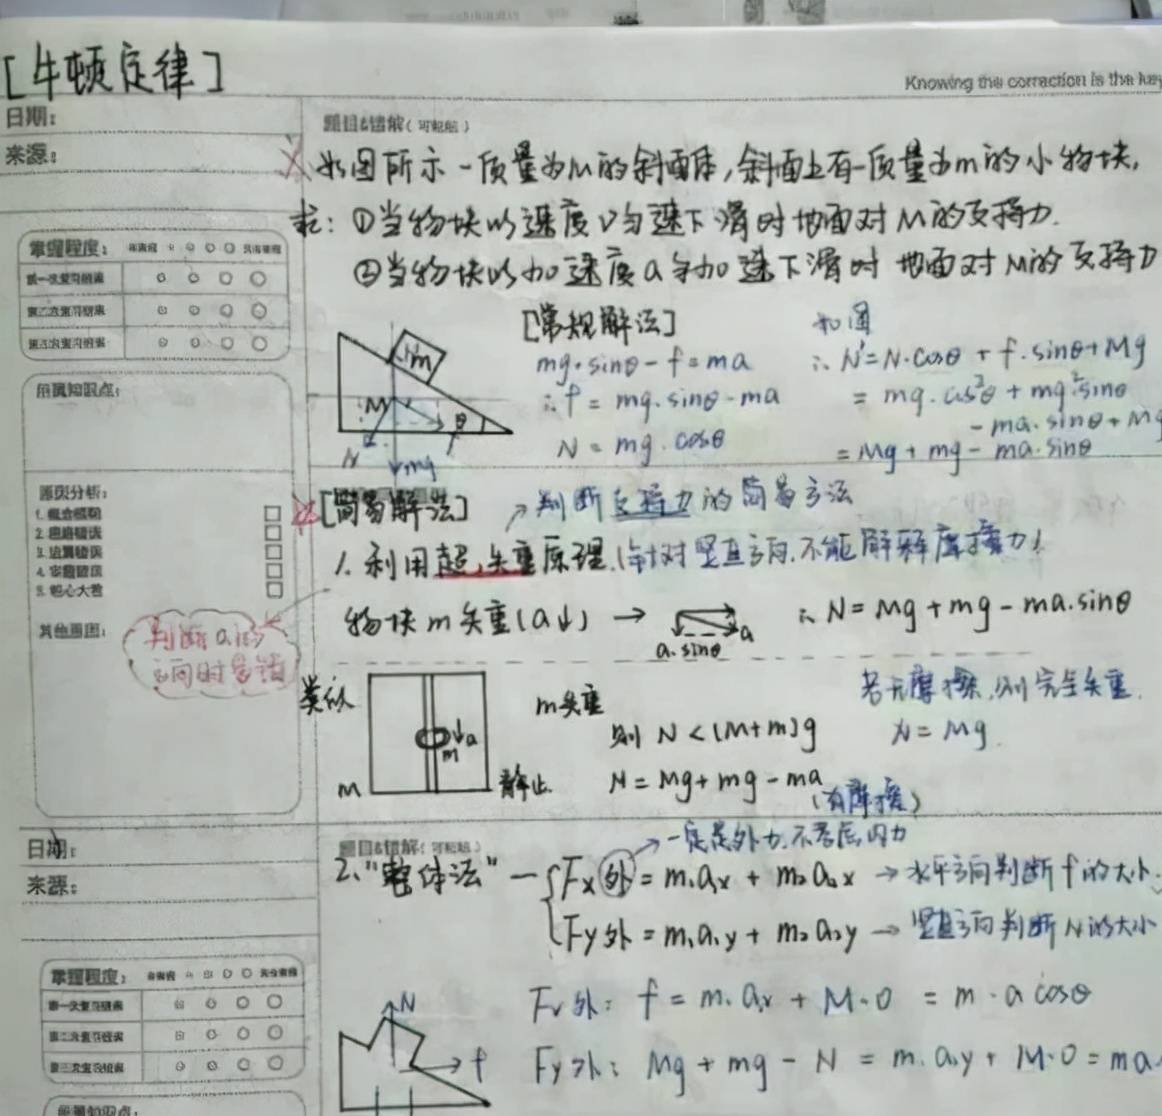 [牛顿定律]
Knowing the correction is the key
日期:
来源:
题目&错解(可粘贴)
如图所示一质量为M的斜面体,斜面上有一质量为m的小物块,
求:①当物块以速度V匀速下滑时地面对M的支持力.
②当物块以加速度a匀加速下滑时地面对M的支持力
掌握程度:
第一次复习结果
第二次复习结果
第三次复习结果
所属知识点:
[常规解法]
mg·sinθ-f=ma
∴f=mg·sinθ-ma
N=mg·cosθ
如图
∴N'=N·cosθ+f·sinθ+Mg
=mg·cos²θ+mg²sinθ
-ma·sinθ+Mg
=Mg+mg-ma·sinθ
m
M
θ
N
mg
原因分析:
1. 概念模糊
2. 思路错误
3. 运算错误
4. 审题错误
5. 粗心大意
其他原因:
判断a的
方向时易错
[简易解法]
判断支持力的简易方法
1.利用超,失重原理.(针对竖直方向.不能解释摩擦力)
物块m失重(a↓)→
a
a·sinθ
∴N=Mg+mg-ma.sinθ
类似
m
↓a
M
静止
m失重
则 N<(M+m)g
N=Mg+mg-ma
(有摩擦)
若无摩擦,则完全失重.
N=Mg.
日期:
来源:
题目&错解(可粘贴)
→一定是外力,不考虑内力
2."整体法"—{Fx外=m₁a₁x+m₂a₂x→水平方向判断f的大小.
Fy外=m₁a₁y+m₂a₂y→竖直方向判断N的大小
掌握程度:
第一次复习结果
第二次复习结果
第三次复习结果
所属知识点:
N
f
Fx外: f=m.ax+M·0=m·a cosθ
Fy外: Mg+mg-N=m.a₁y+M·0=ma.